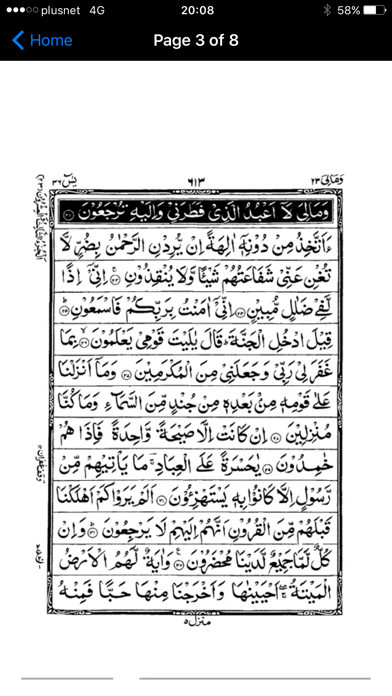 plusnet 4G 20:08 58%
Home Page 3 of 8
يٰسٓ ٣٦ ٦١٣ وَمَالِيَ ٢٣
وَمَالِيَ لَآ اَعْبُدُ الَّذِيْ فَطَرَنِيْ وَاِلَيْهِ تُرْجَعُوْنَ ۲۲
ءَاَتَّخِذُ مِنْ دُوْنِهٖٓ اٰلِهَةً اِنْ يُّرِدْنِ الرَّحْمٰنُ بِضُرٍّ لَّا
تُغْنِ عَنِّيْ شَفَاعَتُهُمْ شَيْئًا وَّلَا يُنْقِذُوْنِ ۲۳ اِنِّيْٓ اِذًا
لَّفِيْ ضَلٰلٍ مُّبِيْنٍ ۲۴ اِنِّيْٓ اٰمَنْتُ بِرَبِّكُمْ فَاسْمَعُوْنِ ۲۵
قِيْلَ ادْخُلِ الْجَنَّةَ قَالَ يٰلَيْتَ قَوْمِيْ يَعْلَمُوْنَ ۲۶ بِمَا
غَفَرَ لِيْ رَبِّيْ وَجَعَلَنِيْ مِنَ الْمُكْرَمِيْنَ ۲۷ وَمَآ اَنْزَلْنَا
عَلٰى قَوْمِهٖ مِنْۢ بَعْدِهٖ مِنْ جُنْدٍ مِّنَ السَّمَآءِ وَمَا كُنَّا
مُنْزِلِيْنَ ۲۸ اِنْ كَانَتْ اِلَّا صَيْحَةً وَّاحِدَةً فَاِذَا هُمْ
خٰمِدُوْنَ ۲۹ يٰحَسْرَةً عَلَى الْعِبَادِ مَا يَاْتِيْهِمْ مِّنْ
رَّسُوْلٍ اِلَّا كَانُوْا بِهٖ يَسْتَهْزِءُوْنَ ۳۰ اَلَمْ يَرَوْا كَمْ اَهْلَكْنَا
قَبْلَهُمْ مِّنَ الْقُرُوْنِ اَنَّهُمْ اِلَيْهِمْ لَا يَرْجِعُوْنَ ۳۱ وَاِنْ
كُلٌّ لَّمَّا جَمِيْعٌ لَّدَيْنَا مُحْضَرُوْنَ ۳۲ وَاٰيَةٌ لَّهُمُ الْاَرْضُ
الْمَيْتَةُ اَحْيَيْنٰهَا وَاَخْرَجْنَا مِنْهَا حَبًّا فَمِنْهُ
منزل ۵